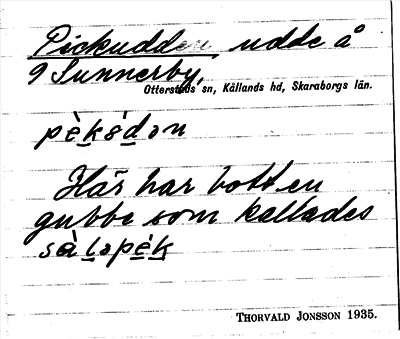 Pickudden udde å
9 Sunnerby,
Otterstads sn, Kållands hd, Skaraborgs län.
pèkʹs̀dən
Här har bott en
gubbe som kallades
sàləpék
THORVALD JONSSON 1935.